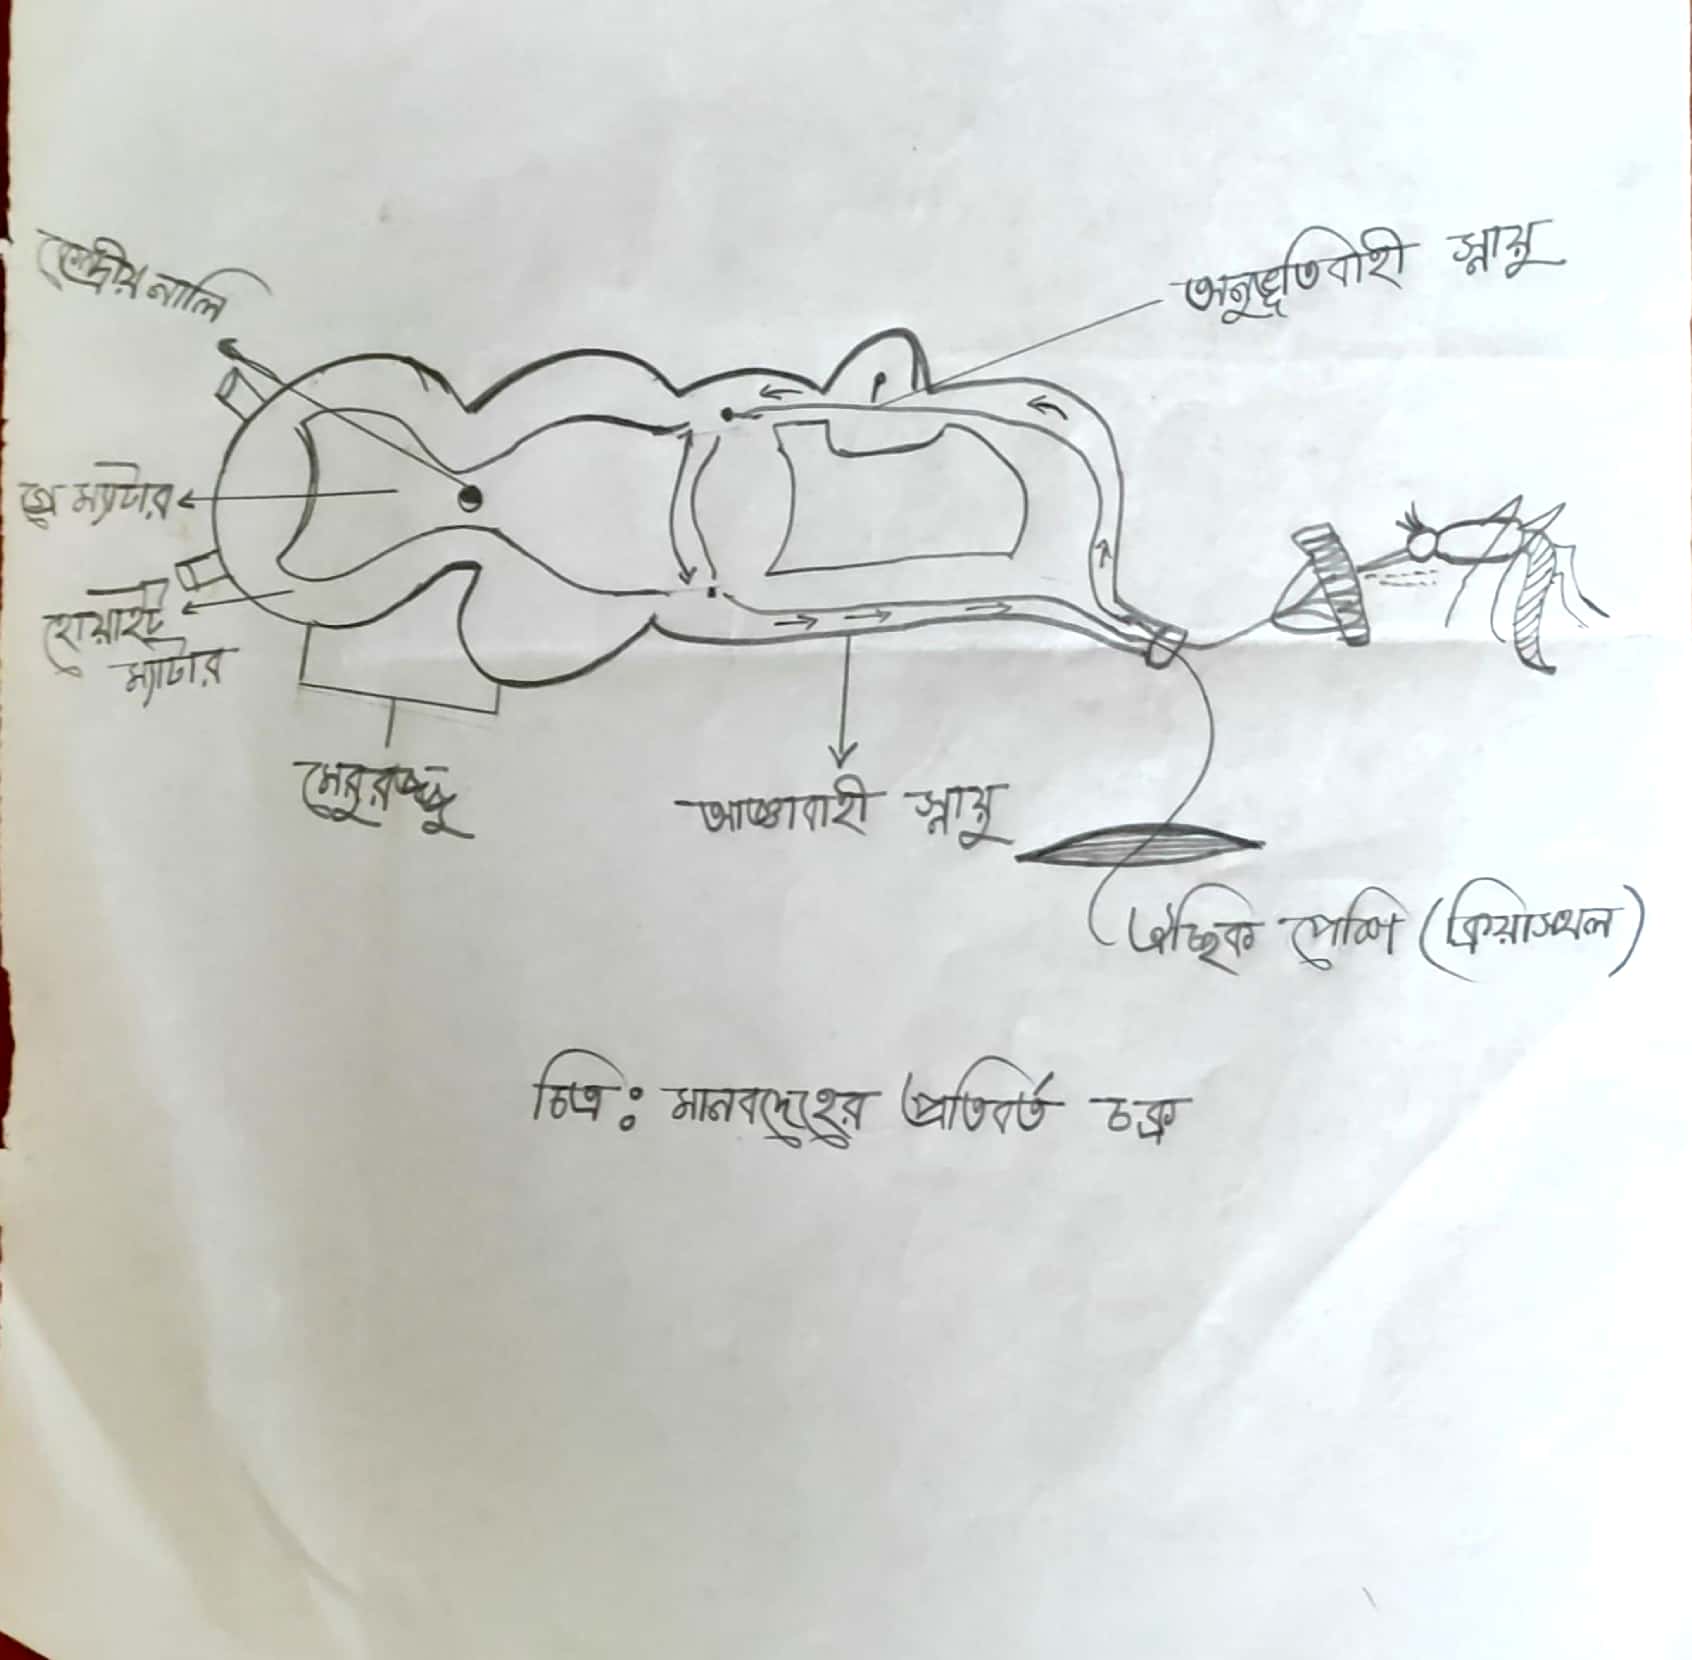 কেন্দ্রীয় নালি
অনুভূতিবাহী স্নায়ু
গ্রে ম্যাটার
হোয়াইট
ম্যাটার
মেরুরজ্জু
আজ্ঞাবাহী স্নায়ু
ঐচ্ছিক পেশি (ক্রিয়াস্থল)
চিত্র: মানবদেহের প্রতিবর্ত চক্র